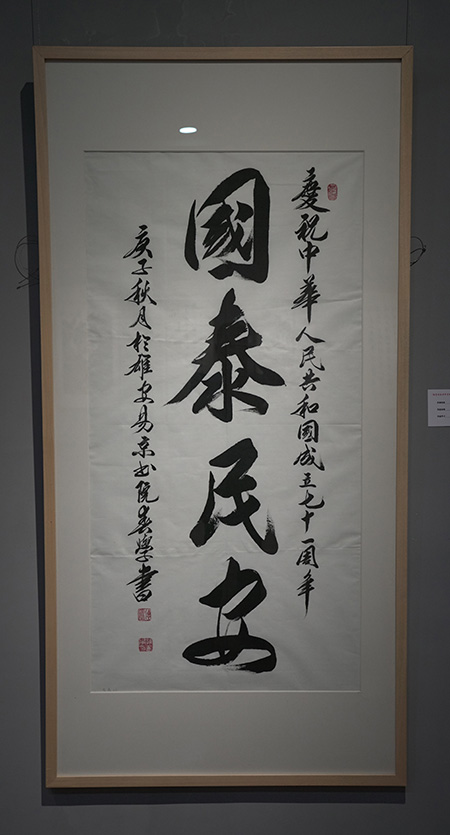 慶祝中華人民共和國成立七十一周年
國泰民安
庚子秋月於雄安易京书院春學書